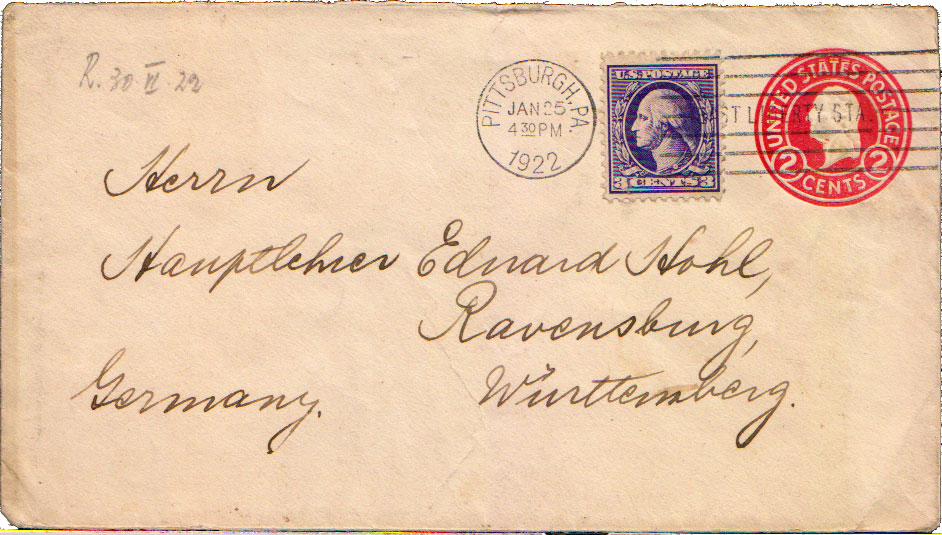 R. 30 VI 22
PITTSBURGH, PA.
JAN 25
4 30 PM
1922
U.S. POSTAGE
3 CENTS 3
ST LIBERTY STA.
UNITED STATES POSTAGE
2 CENTS 2
Herrn
Hauptlehrer Eduard Hohl,
Ravensburg,
Württemberg.
Germany.